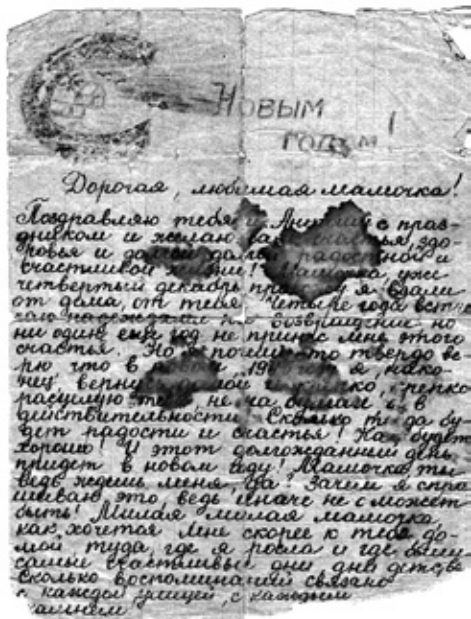 С Новым
годом!
Дорогая, любимая мамочка!
Поздравляю тебя и с праз-
дником и желаю счастья, здо-
ровья и долгой, долгой радостной и
счастливой жизни! Мамочка, уже
четвёртый декабрь я вдали
от дома, от тебя. Четыре года
возвращение но
ни один ещё год не принёс мне этого
счастья. Но я твердо ве-
рю что в я, нако-
нец, вернусь домой и крепко крепко
расцелую не на бумаге, а в
действительности. Сколько бу-
дет радости и счастья! Как будет
хорошо! И этот долгожданный день
придет в новом году! Мамочка ты
ведь ждёшь меня, да? Зачем я спра
шиваю это, ведь иначе не сможет
быть! Милая милая мамочка,
как хочется мне скорее к тебе, до-
мой, туда, где я росла и где были
самые счастливые дни, дни детства
Сколько воспоминаний связано
с каждой улицей, с каждым
камнем